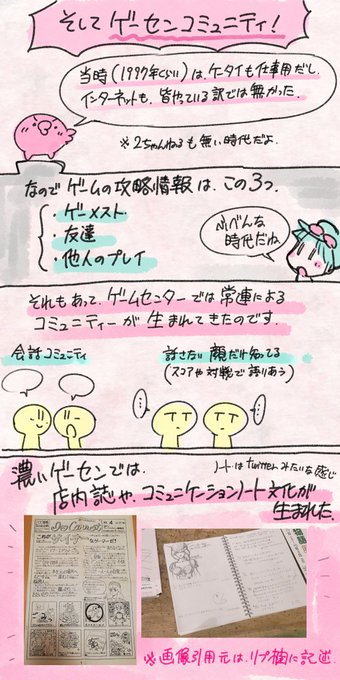 そして ゲーセンコミュニティ!
当時(1997年くらい)は、ケータイも仕事用だし、
インターネットも、皆やっている訳では無かった。
※2ちゃんねるも無い時代だよ。
なのでゲームの攻略情報は、この3つ。
・ゲーメスト
・友達
・他人のプレイ
ふべんな
時代だね
それもあって、ゲームセンターでは常連による
コミュニティーが生まれてきたのです。
会話コミュニティ
話さない顔だけ知ってる
(スコアや対戦で語りあう)
濃いゲーセンでは、
ノートはtwitterみたいな感じ
店内誌や、コミュニケーションノート文化が
生まれた。
※画像引用元は、リプ欄に記述。